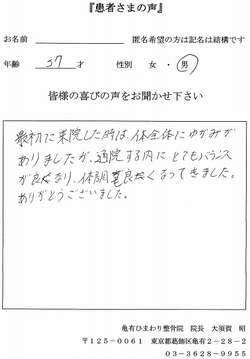 『患者さまの声』
お名前 匿名希望の方は記名は結構です
年齢 37 才 性別 女・男
皆様の喜びの声をお聞かせ下さい
最初に来院した時は、体全体にゆがみが
ありましたが、通院する内にとてもバランス
が良くなり、体調良くなってきました。
ありがとうございました。
亀有ひまわり整骨院 院長 大須賀 昭
〒125-0061 東京都葛飾区亀有2-28-2
03-3628-9955